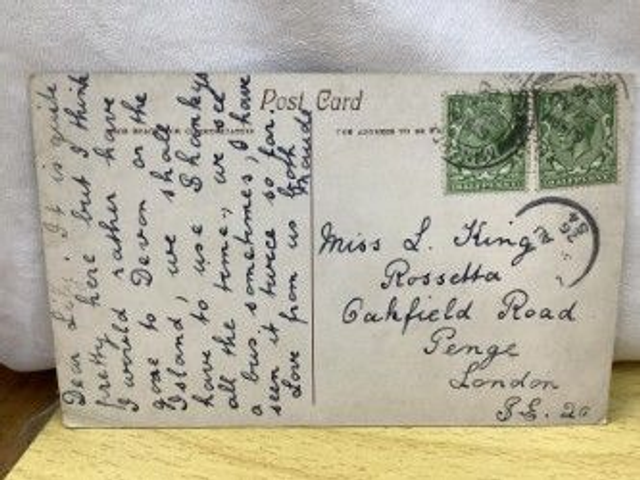 Post Card
Dear Lily. It is quite
pretty here but I think
I would rather have
gone to Devon or the
Island, we shall
have to use Shankys
all the time, we see
a bus sometimes, I have
seen it twice so far.
Love from us both
Maude
Miss L. King
Rossetta
Oakfield Road
Penge
London
S.E. 20